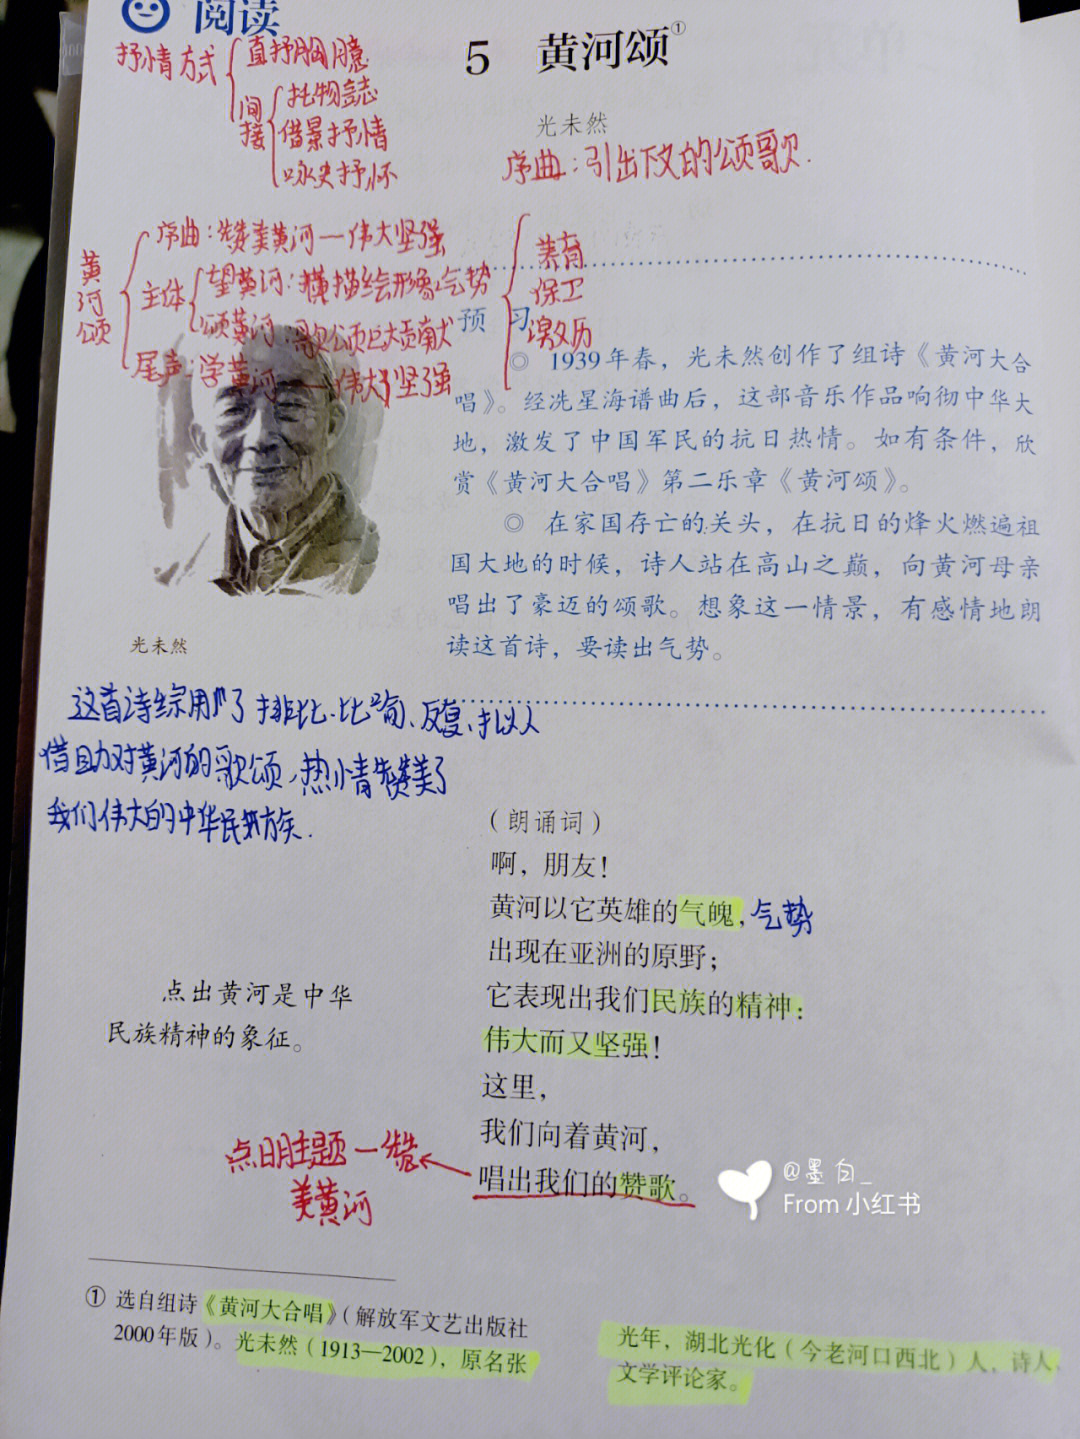 阅读
5 黄河颂①
光未然
抒情方式
直抒胸臆
间接
托物言志
借景抒情
咏史抒怀
序曲：引出下文的颂歌.
黄河颂
序曲：赞美黄河—伟大坚强
主体
望黄河：描绘形象气势
颂黄河：歌颂巨大贡献
养育
保卫
尾声：学黄河——伟大坚强
预 习
◎ 1939年春，光未然创作了组诗《黄河大合
唱》。经冼星海谱曲后，这部音乐作品响彻中华大
地，激发了中国军民的抗日热情。如有条件，欣
赏《黄河大合唱》第二乐章《黄河颂》。
◎ 在家国存亡的关头，在抗日的烽火燃遍祖
国大地的时候，诗人站在高山之巅，向黄河母亲
唱出了豪迈的颂歌。想象这一情景，有感情地朗
读这首诗，要读出气势。
光未然
这首诗综用了排比、比喻、反复、拟人
借助对黄河的歌颂，热情赞美了
我们伟大的中华民族.
（朗诵词）
啊，朋友！
黄河以它英雄的气魄，气势
出现在亚洲的原野；
它表现出我们民族的精神：
伟大而又坚强！
这里，
我们向着黄河，
唱出我们的赞歌。
点出黄河是中华
民族精神的象征。
点明主题—赞
美黄河
@墨白_
From 小红书
① 选自组诗《黄河大合唱》（解放军文艺出版社
2000年版）。光未然（1913—2002），原名张
光年，湖北光化（今老河口西北）人，诗人、
文学评论家。